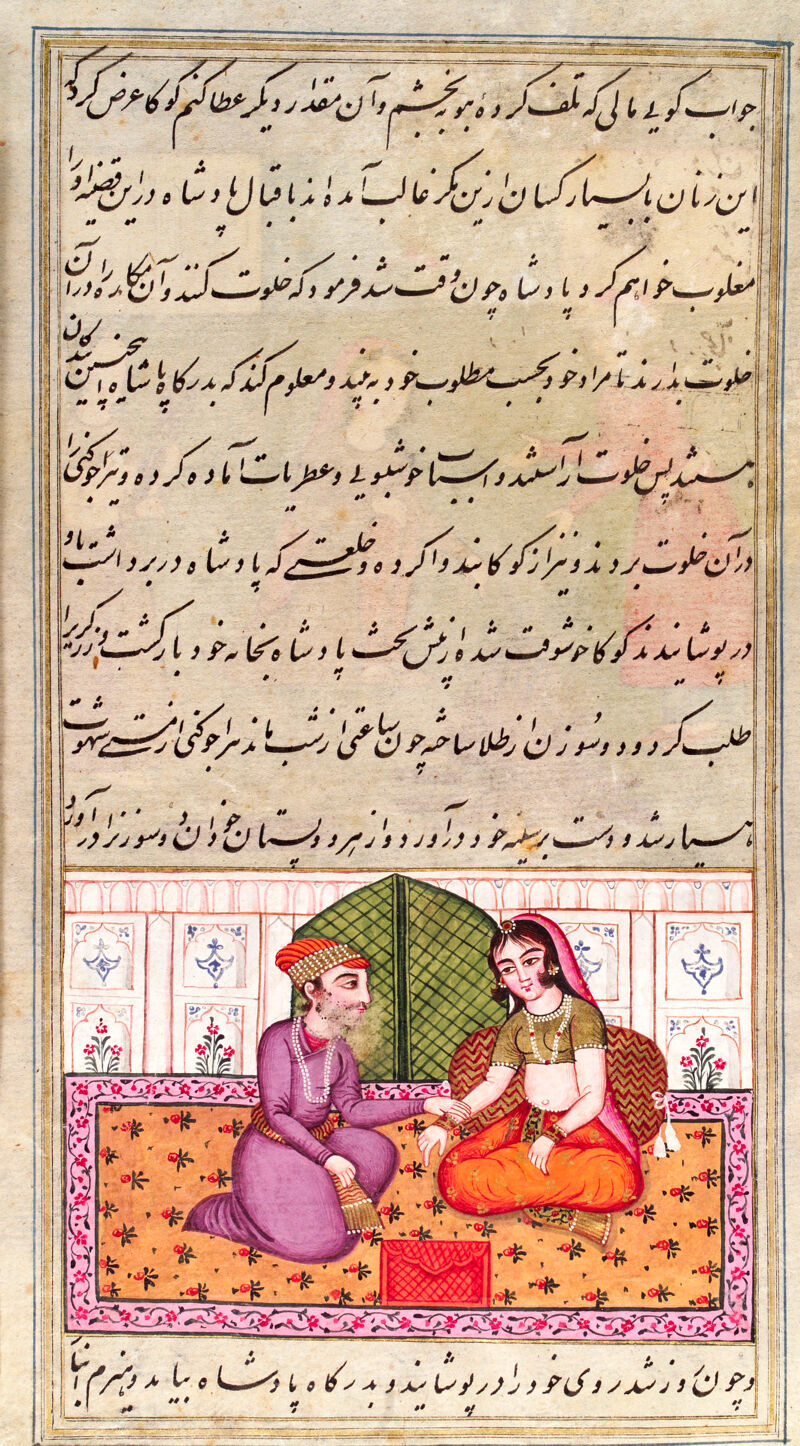 جواب کویے مالی که تلف کرده بتو بخشم و آن مقدار دیگر عطا کنم کوکا عرض کرد که
این زنان با بسیار کسان ازین مکر غالب آمده اند باقبال پادشاه در این قضیه او را
مغلوب خواهم کرد پادشاه چون وقت شد فرمود که خلوت کنند و آن مکاره را در آن
خلوت بدارند تا مراد خود بحسب مطلوب خود به بیند و معلوم کند که بدرکاه پادشاه اینچنین بندکان
هستند پس خلوت آراستند و اسباب خوشبویے و عطریات آماده کرده و جوکنی را
در آن خلوت بردند و نیز از کوکا بند وا کرده و خلعتے که پادشاه در بر داشت باو
در پوشانیدند کوکا خوشوقت شده از پیش تخت پادشاه بخانه خود بازکشت و زرکر را
طلب کرد و دو سوزن از طلا ساخته چون ساعتی از شب ماند جوکنی از مستے شهوت
هسیار شد و دست بر سینه خود در آورد و از هر دو پستان خود آن دو سوزن را در آورد
و چون روز شد روی خود را در پوشانید و بدرکاه پادشاه بیامد